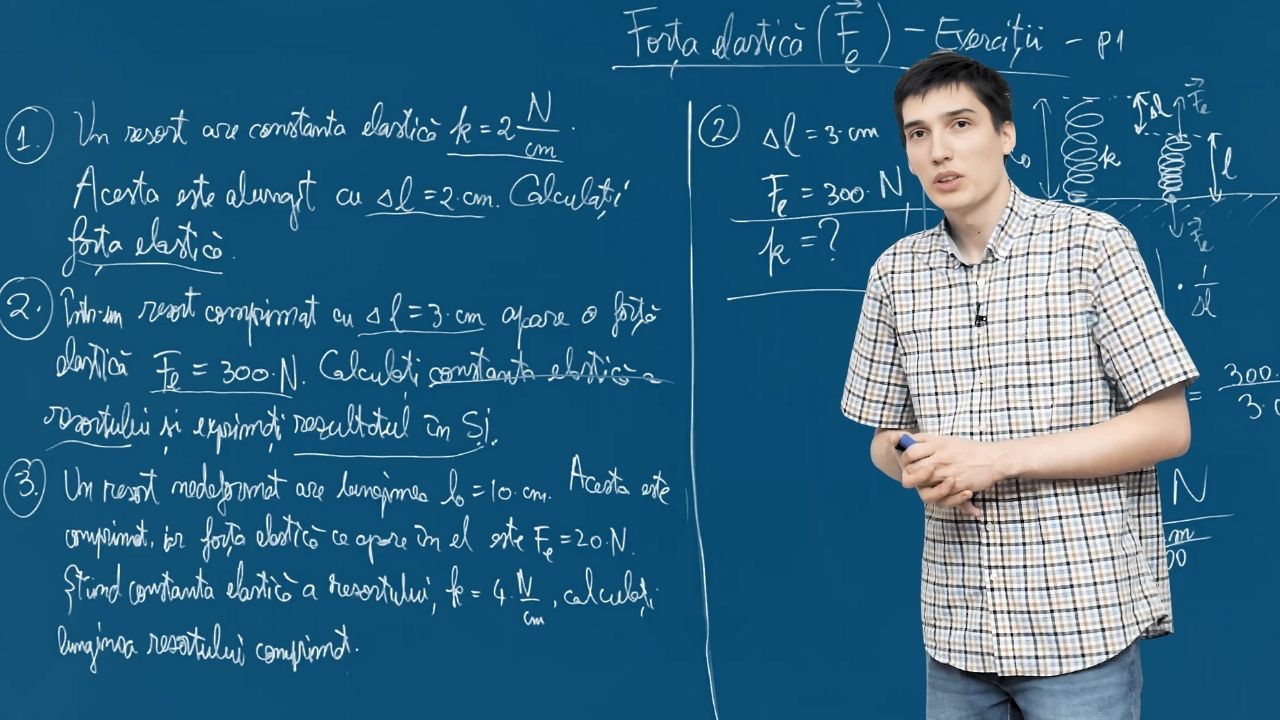 Forța elastică (F⃗e) – Exerciții – p1
1. Un resort are constanta elastică k = 2 N/cm.
Acesta este alungit cu Δl = 2·cm. Calculați
forța elastică.
2. Într-un resort comprimat cu Δl = 3·cm apare o forță
elastică Fe = 300·N. Calculați constanta elastică a
resortului și exprimați rezultatul în SI.
3. Un resort nedeformat are lungimea l₀ = 10·cm. Acesta este
comprimat, iar forța elastică ce apare în el este Fe = 20·N.
Știind constanta elastică a resortului, k = 4·N/cm, calculați
lungimea resortului comprimat.
2 Δl = 3·cm
Fe = 300·N
k = ?
k
Δl
F⃗e
l
F⃗e
· 1/Δl
= 300·
3·
N